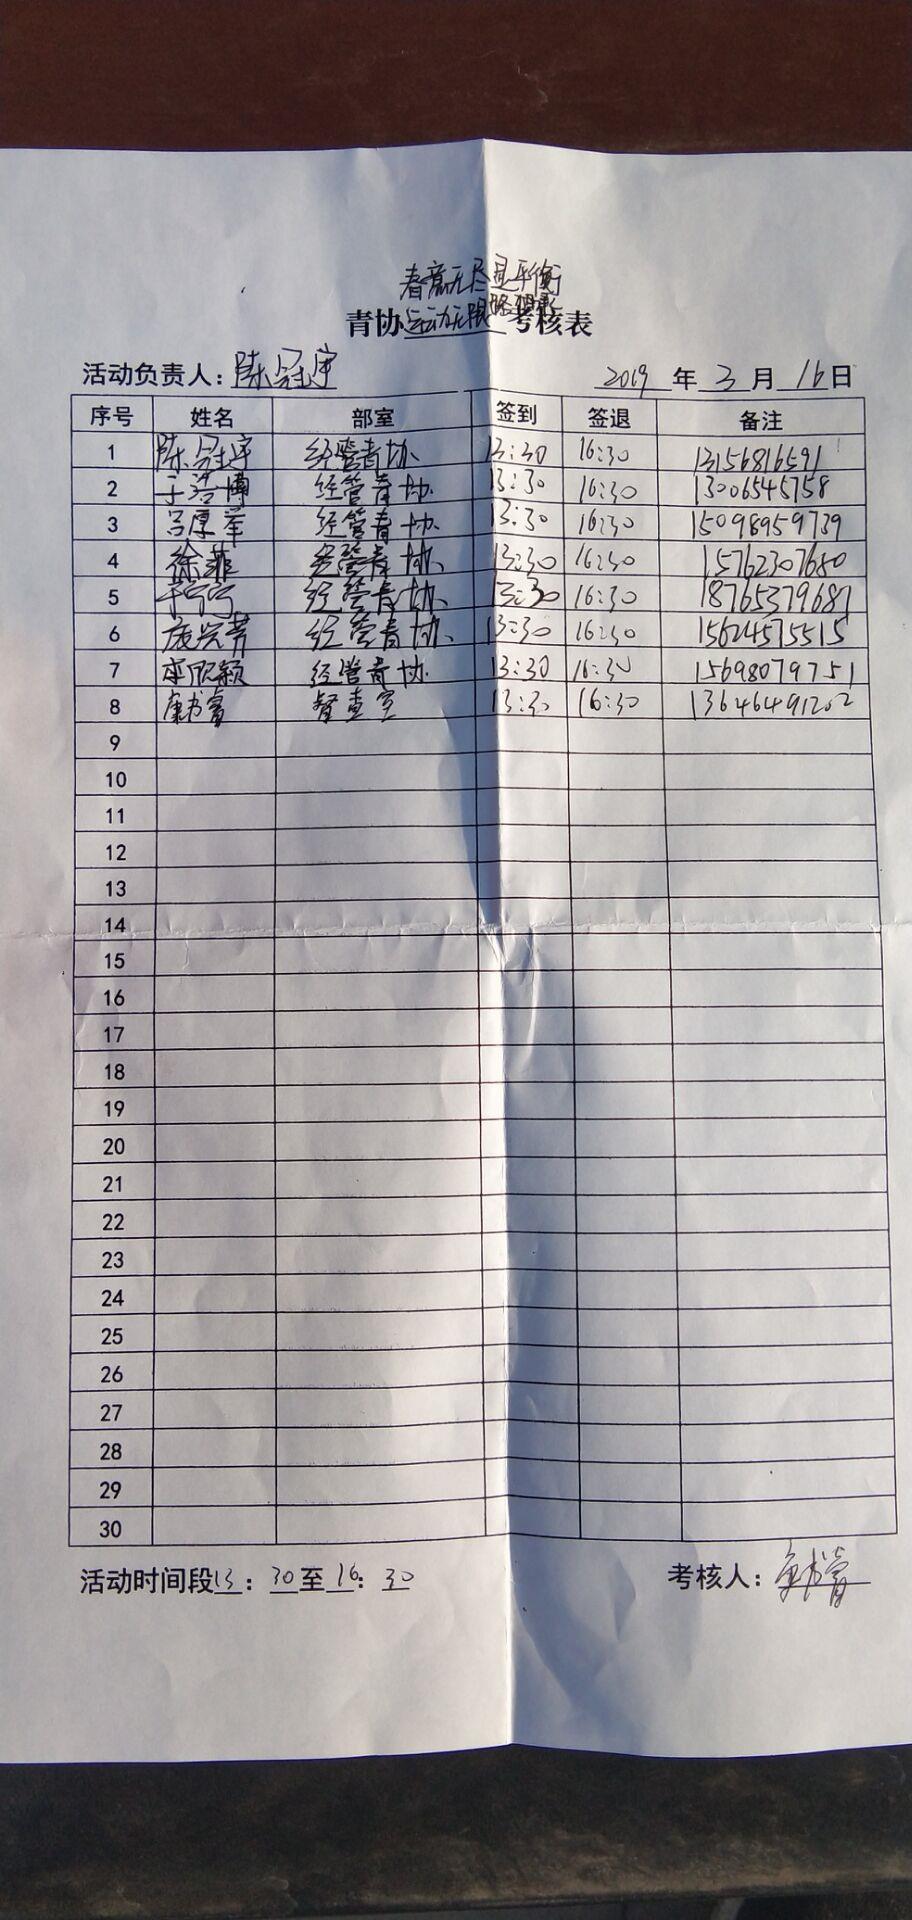 春意无尽显平衡
青协运动无限 考核表
活动负责人：陈冠宇 2019 年 3 月 16 日
序号 姓名 部室 签到 签退 备注
1 陈冠宇 经管青协 13:30 16:30 13156816591
2 于浩博 经管青协 13:30 16:30 13006545758
3 吕厚举 经管青协 13:30 16:30 15098959739
4 徐菲 经管青协 13:30 16:30 15762307680
5 经管青协 13:30 16:30 18765379687
6 经管青协 13:30 16:30 15624575515
7 经管青协 13:30 16:30 15698079751
8 康书睿 督查室 13:30 16:30 13646491202
9
10
11
12
13
14
15
16
17
18
19
20
21
22
23
24
25
26
27
28
29
30
活动时间段 13：30 至 16：30 考核人：